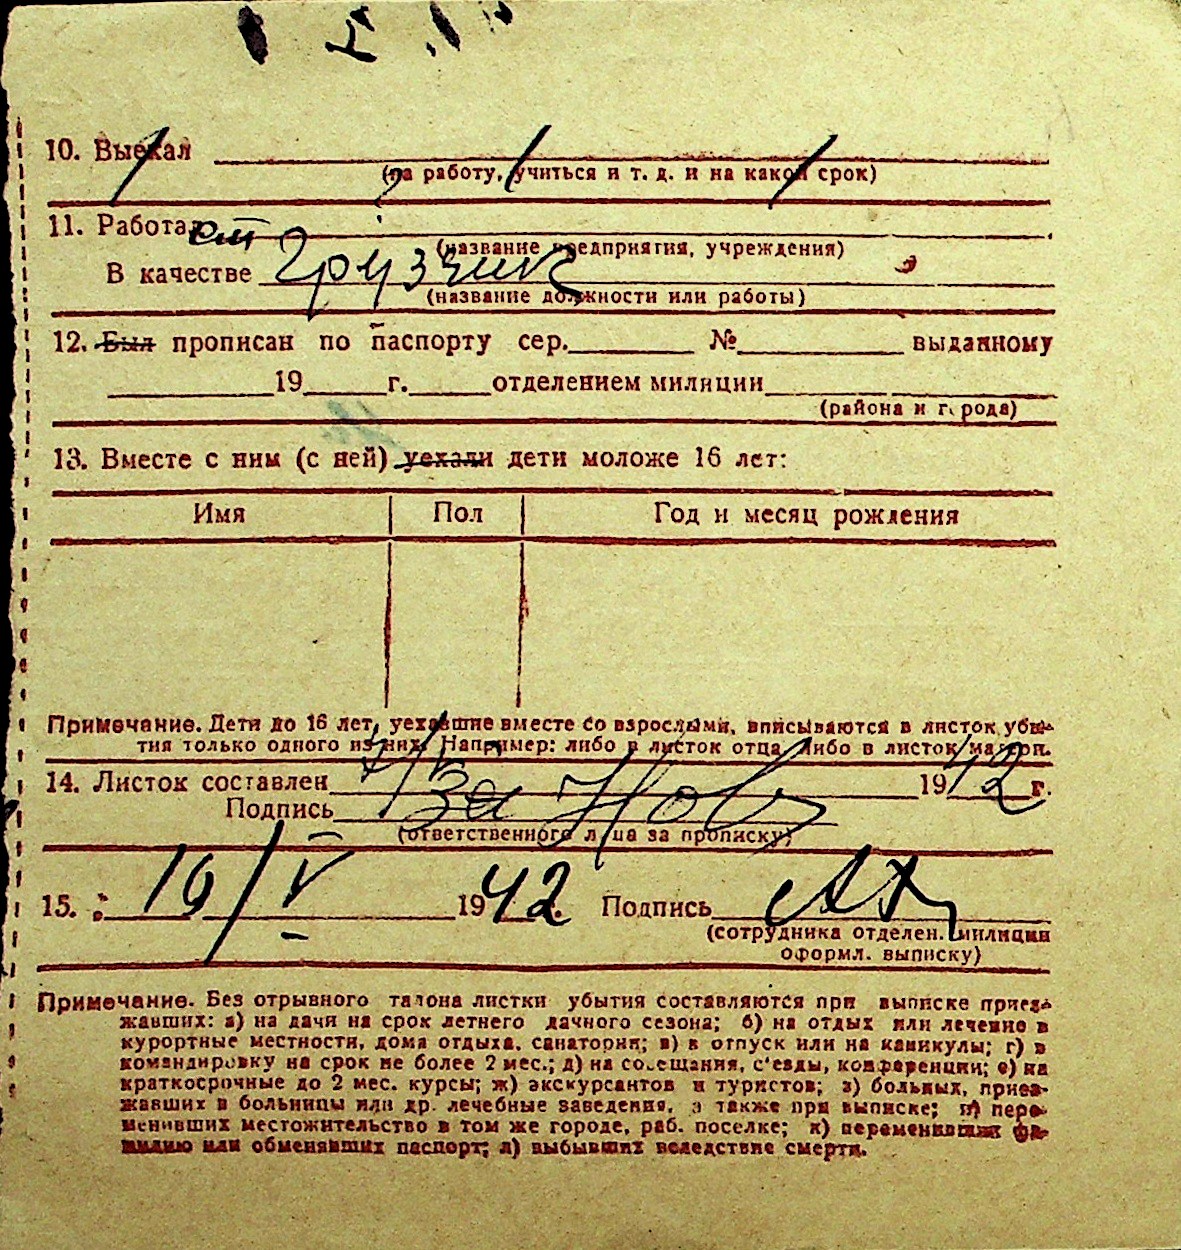 10. Выехал
(на работу, учиться и т. д. и на какой срок)
11. Работает
(название предприятия, учреждения)
В качестве грузчик
(название должности или работы)
12. Был прописан по паспорту сер. № выданному
19 г. отделением милиции
(района и города)
13. Вместе с ним (с ней) уехали дети моложе 16 лет:
Имя Пол Год и месяц рождения
Примечание. Дети до 16 лет, уехавшие вместе со взрослыми, вписываются в листок убы-
тия только одного из них. Например: либо в листок отца, либо в листок матери.
14. Листок составлен 1942 г.
Подпись За
(ответственного лица за прописку)
15. 19/V 1942. Подпись
(сотрудника отделен. милиции
оформл. выписку)
Примечание. Без отрывного талона листки убытия составляются при выписке приез-
жавших: а) на дачи на срок летнего дачного сезона; б) на отдых или лечение в
курортные местности, дома отдыха, санатории; в) в отпуск или на каникулы; г) в
командировку на срок не более 2 мес.; д) на совещания, с'езды, конференции; е) на
краткосрочные до 2 мес. курсы; ж) экскурсантов и туристов; з) больных, приез-
жавших в больницы или др. лечебные заведения, а также при выписке; и) пере-
менивших местожительство в том же городе, раб. поселке; к) переменивших фа-
милию или обменявших паспорт; л) выбывших вследствие смерти.